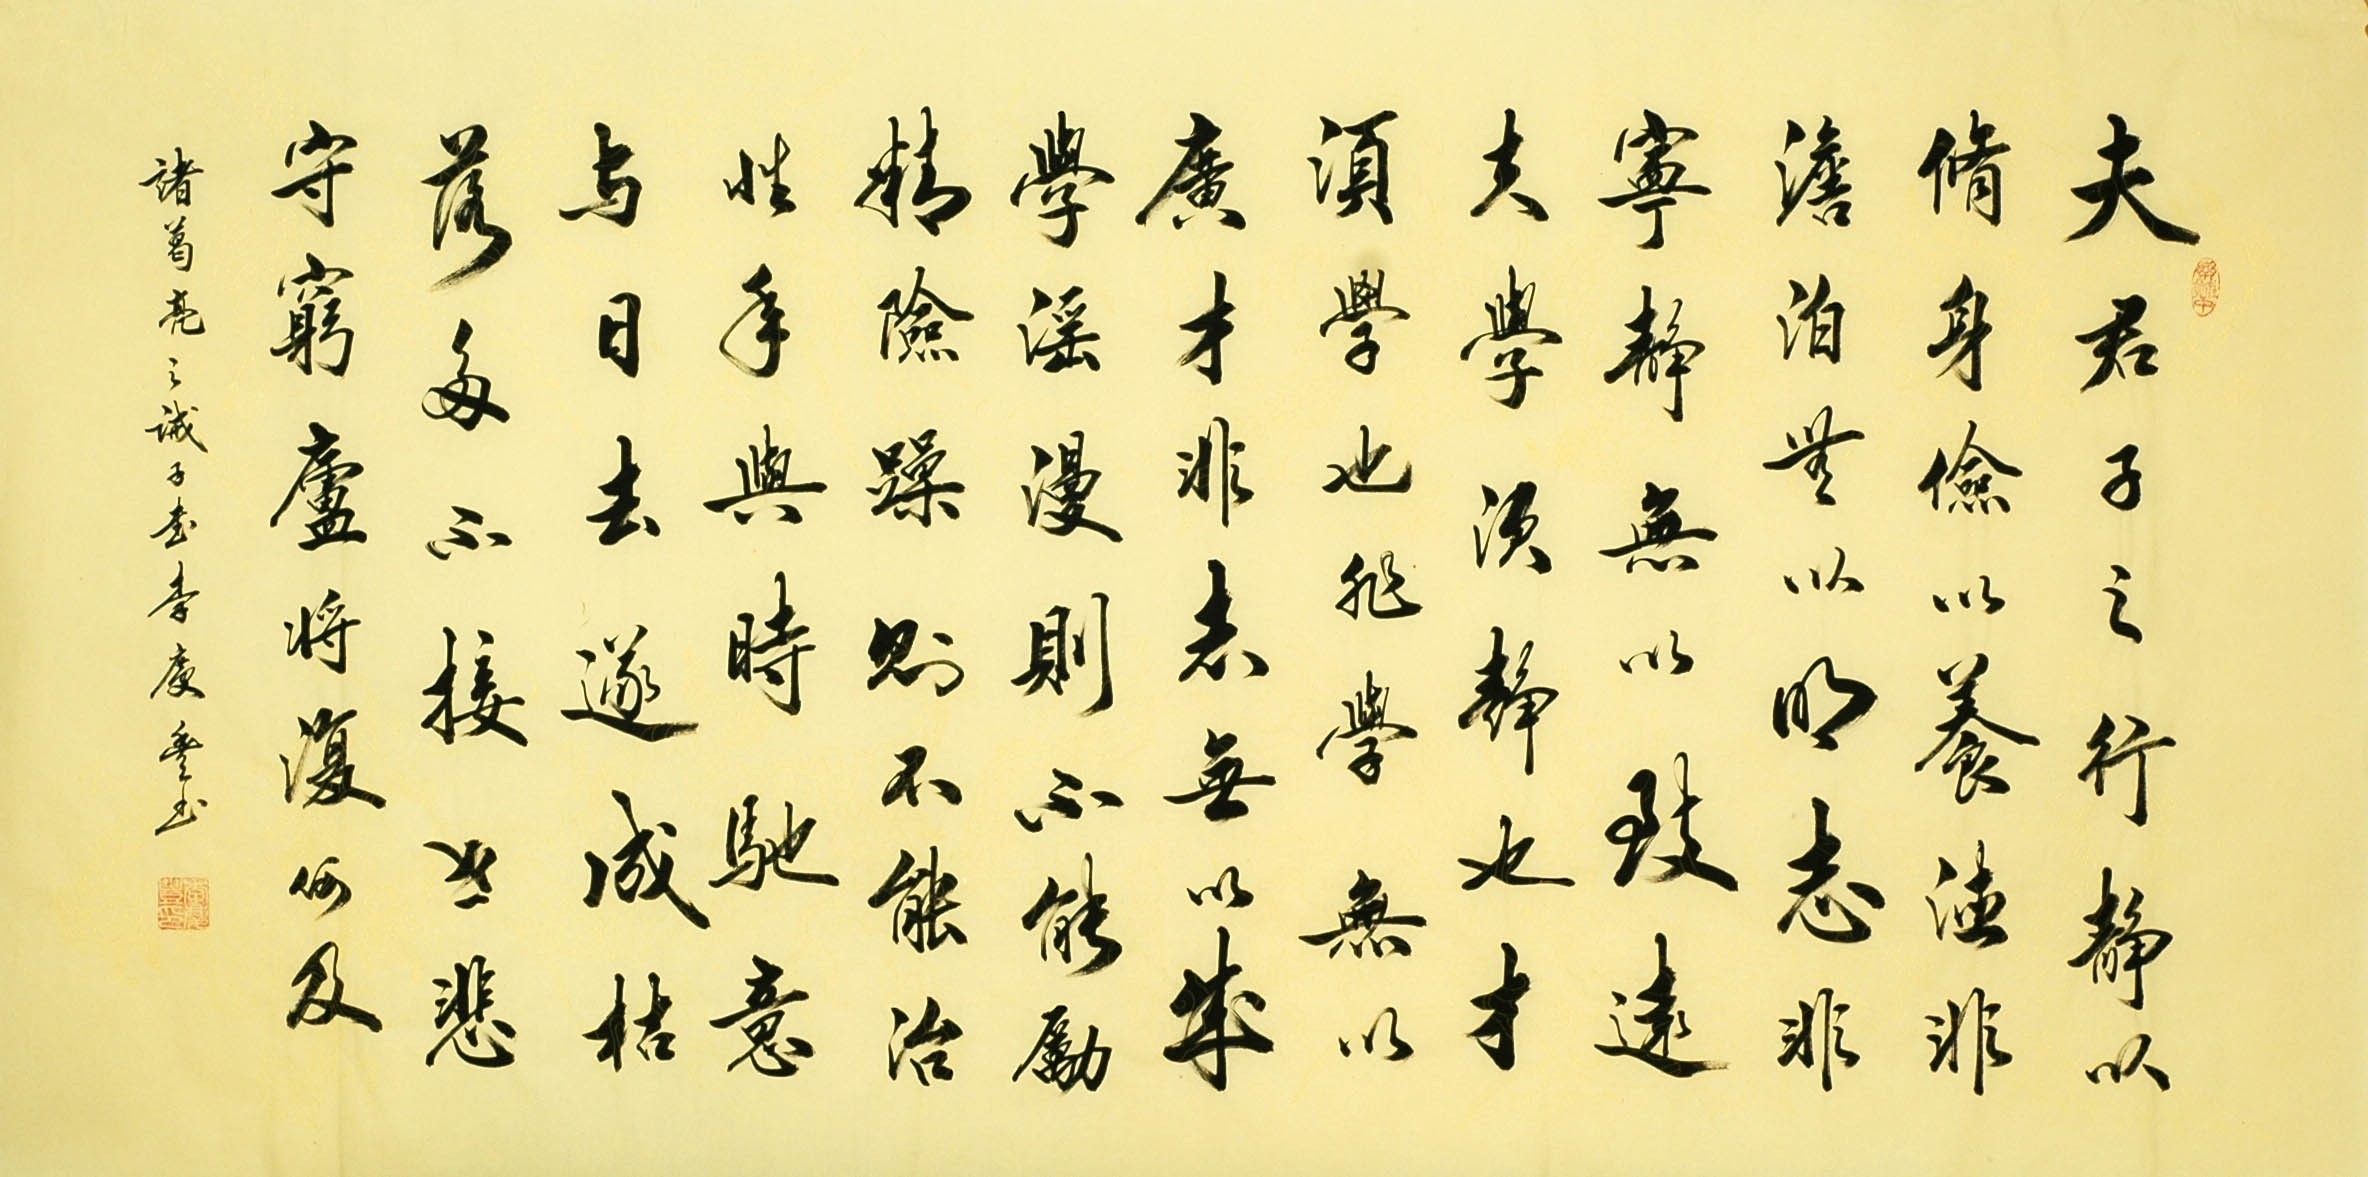 夫君子之行靜以
脩身儉以養德非
澹泊無以明志非
寧靜無以致遠
夫學須靜也才
須學也非學無以
廣才非志無以成
學滛漫則不能勵
精險躁則不能治
性年與時馳意
与日去遂成枯
落多不接世悲
守窮廬將復何及
諸葛亮之誡子書李庚